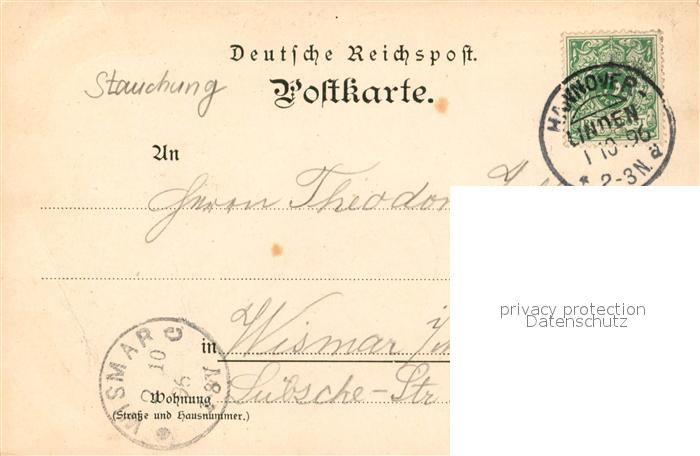 Deutsche Reichspost.
Postkarte.
Stauchung
HANNOVER-
LINDEN
1 10.96
* 2-3N. a
An
Herrn Theodor
privacy protection
Datenschutz
in Wismar i/m
Lübsche-Str
WISMAR
10
96
Wohnung
(Straße und Hausnummer.)